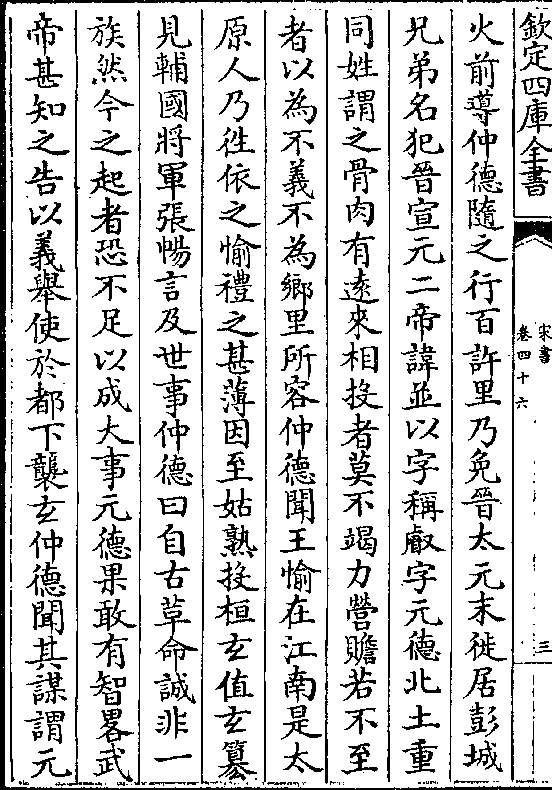 欽定四庫全書
宋書
卷四十六
三
火前導仲德隨之行百許里乃免晉太元末徙居彭城
兄弟名犯晉宣元二帝諱並以字稱叡字元德北土重
同姓謂之骨肉有遠來相投者莫不竭力營贍若不至
者以為不義不為鄉里所容仲德聞王愉在江南是太
原人乃徃依之愉禮之甚薄因至姑熟投桓玄值玄篡
見輔國將軍張暢言及世事仲德曰自古革命誠非一
族然今之起者恐不足以成大事元德果敢有智畧武
帝甚知之告以義舉使於都下襲玄仲德聞其謀謂元